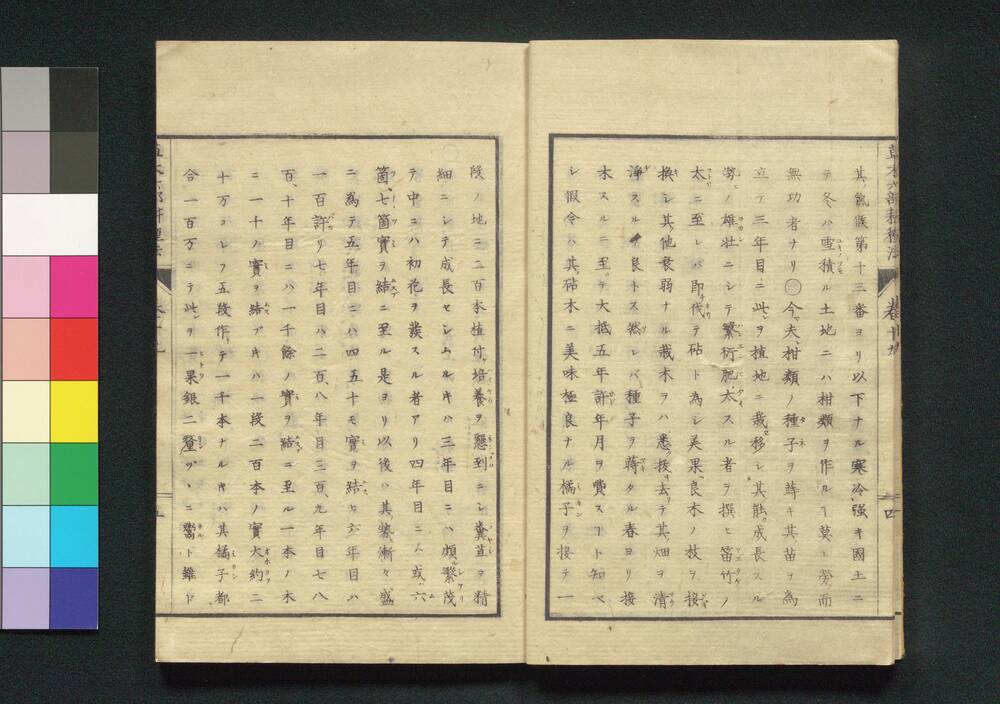 草木六部耕種法 巻十九 四
其氣候第十三番ヨリ以下ナル寒冷強キ國土ニ
テ冬ハ雪積ル土地ニハ柑類ヲ作ル丁莫レ勞而
無功者ナリ○今夫柑類ノ種子ヲ蒔キ其苗ヲ為
立テ三年目ニ此ヲ植地ニ栽移シ其能成長スル
勞ヒ雄壮ニシテ繁衍肥太スル者ヲ撰ヒ笛竹ノ
太ニ至レバ即伐テ砧ト為シ美果良木ノ枝ヲ接
換シ其他衰弱ナル栽木ヲハ悉抜去リテ其畑ヲ清
淨スルヲ良トス然レバ種子ヲ蒔タル春ヨリ接
木スルニ至テ大抵五年許年月ヲ費スコト知ベ
シ假令ハ其砧木ニ美味極良ナル橘子ヲ接テ一
段ノ地ニ二百本植付培養ヲ懇到ニシ糞苴ヲ精
細ニシテ成長センムルキハ三年目ニハ頗繁茂
テ中ニハ初花ヲ發スル者アリ四年目ニハ或六
箇七箇實ヲ結ニ至ル是ヨリ以後ハ其勢漸々盛
ニ為テ五年目ニハ四五十モ實ヲ結ヒ六年目ハ
一百許リ七年目ハ二百八年目三百九年目七八
百十年目ニハ一千餘ノ實ヲ結ニ至ル一本ノ木
ニ一千ノ實ヲ結ブキハ一段二百本ノ實大約二
十万コレヲ五段作テ一千本ナルキハ其橘子都
合一百万ニテ此ヲ一果銀二釐ヅヽニ鬻ト雖ド
草木六部耕種法 巻十九 五